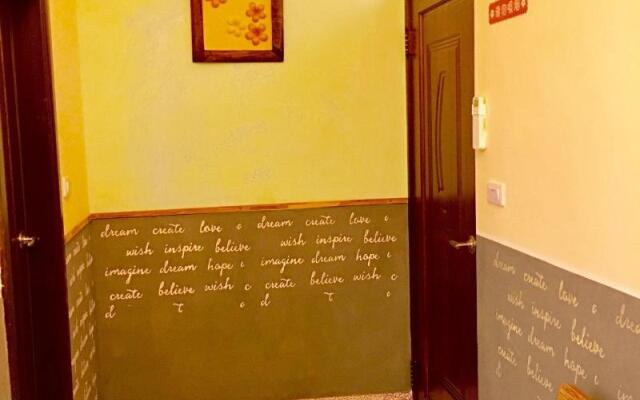 dream create love c dream create love c
wish inspire believe wish inspire believe
imagine dream hope c imagine dream hope c
create believe wish c create believe wish c
d T o d T o
dream create love c drea
wish inspire believe
imagine dream hope c
create believe
d